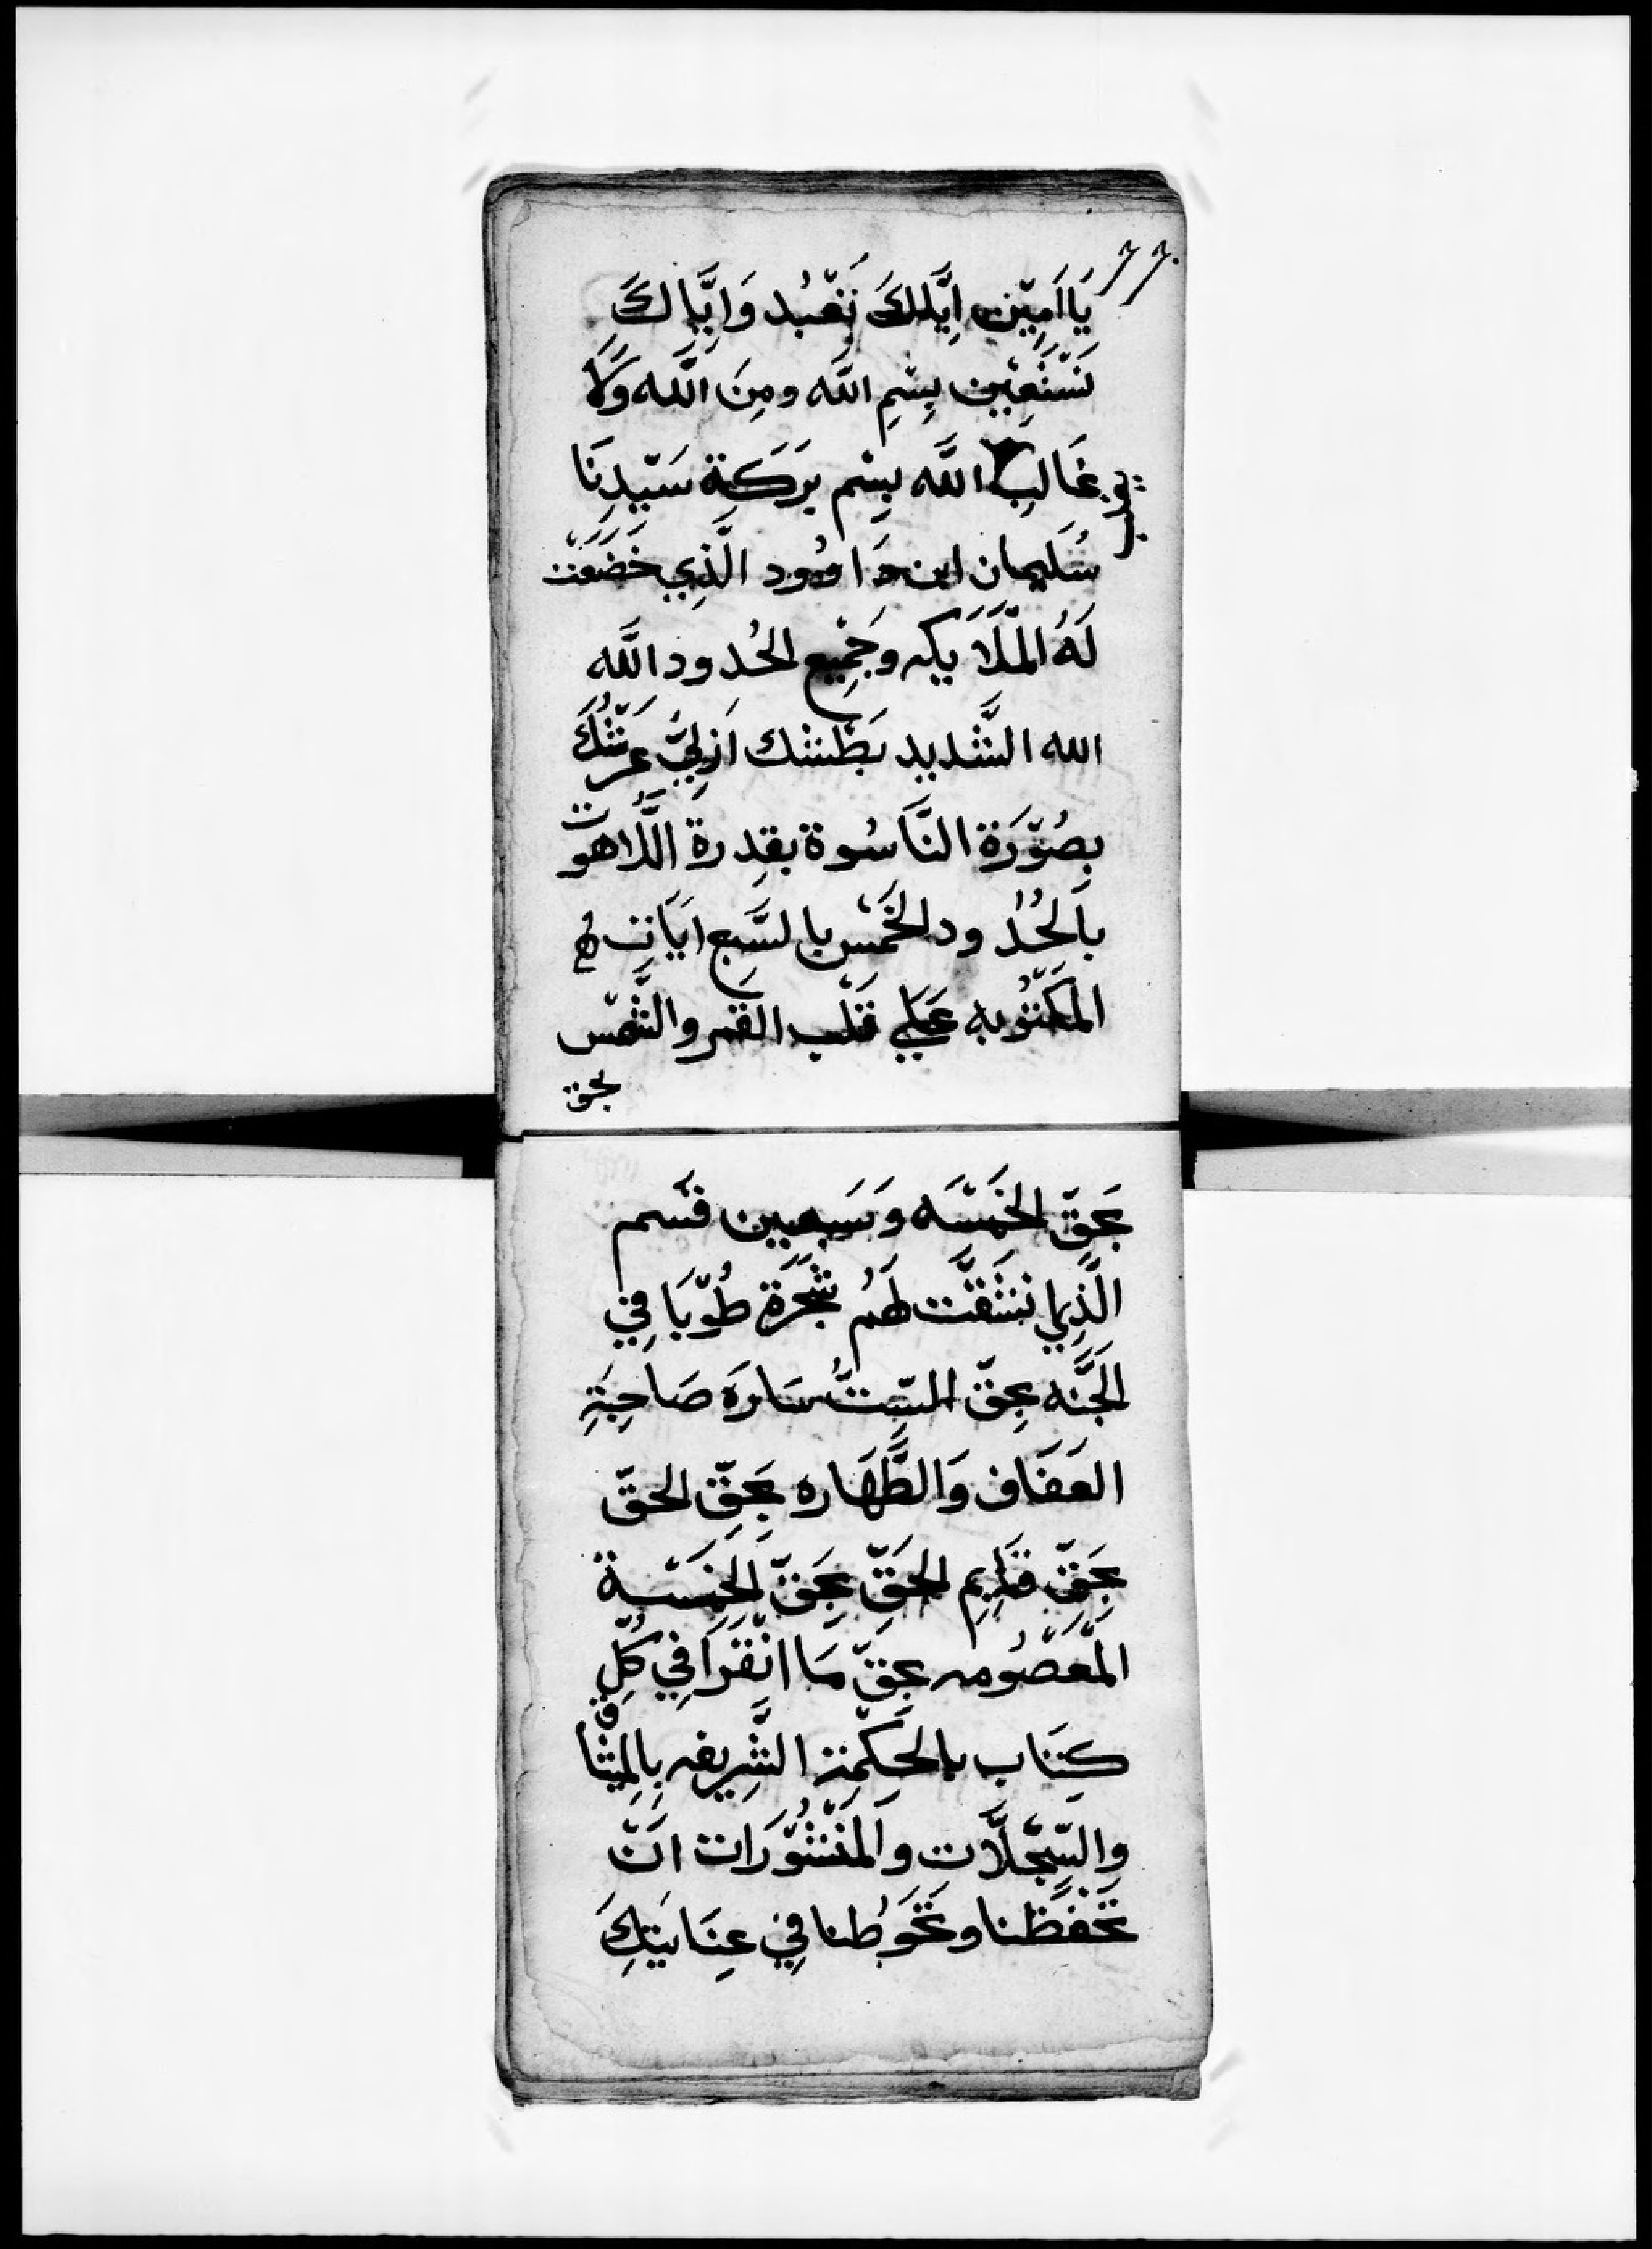 ٦٦
يَا اَمِيّن اِيَّاكَ نَعْبُد وَاِيَّاكَ
نَسْتَعِيْن بِسْمِ اللَّه ومِنَ اللَّه وَلَا
غَالِب اللَّه بِسْم بَرَكَةِ سَيّدِنَا
سُلَيمان ابن دَاوُود الَّذِي خَضَعَتْ
لَهُ المَلَايِكه وجَمِيْع الحُدود اللَّه
الله الشَّديد بَطْشك اَزليّ عَرْشُكَ
بِصُوّرَة النَّاسُوة بقِدرة اللَّاهوت
بالحُدُود الخَمْس بالسَّبع ايَات
المَكتُوبه عَلي قَلْب القَمر والشَّمْس
بحق
بحَقّ الخَمْسَه وَسَبعين قسَم
الَّذي انشَقَّت لهُم شَجَرَة طُوّبَا فِي
الجَنَّه بحِقّ السِّتُّ سَارَه صَاحِبَةِ
العَفَاف وَالطَّهَاره بحَقِّ الحقّ
بحَقِّ قَايِم الحَقِّ بحَقّ الخَمْسَة
المَعَصُومه بحِقّ مَا انْقَرَا فِي كُلِّ
كِتَاب بالحِكْمَة الشَّرِيفه بِالمِيْثاق
والسِّجْلَّات والمَنْشُوّرَات انّ
تَحْفَظنا وتَحَوُطنا فِي عِنَايَتِكَ